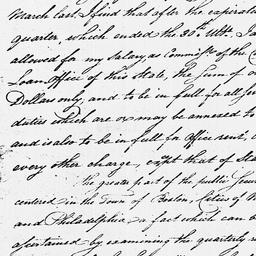 March last I find that after the expiratio
quarter which ended the 30th Ult. I a
allowed for my Salary, as Commissr. of the C
Loan Office of this State, the Sum of o
Dollars only, and to be in full for all ser
duties which are or may be annexed to
and is also to be in full for Office rent, a
every other charge, except that of Sta
The greater part of the public Secu
centered in the Town of Boston, Cities of N
and Philadelphia a fact which can b
ascertained by examining the quarterly r